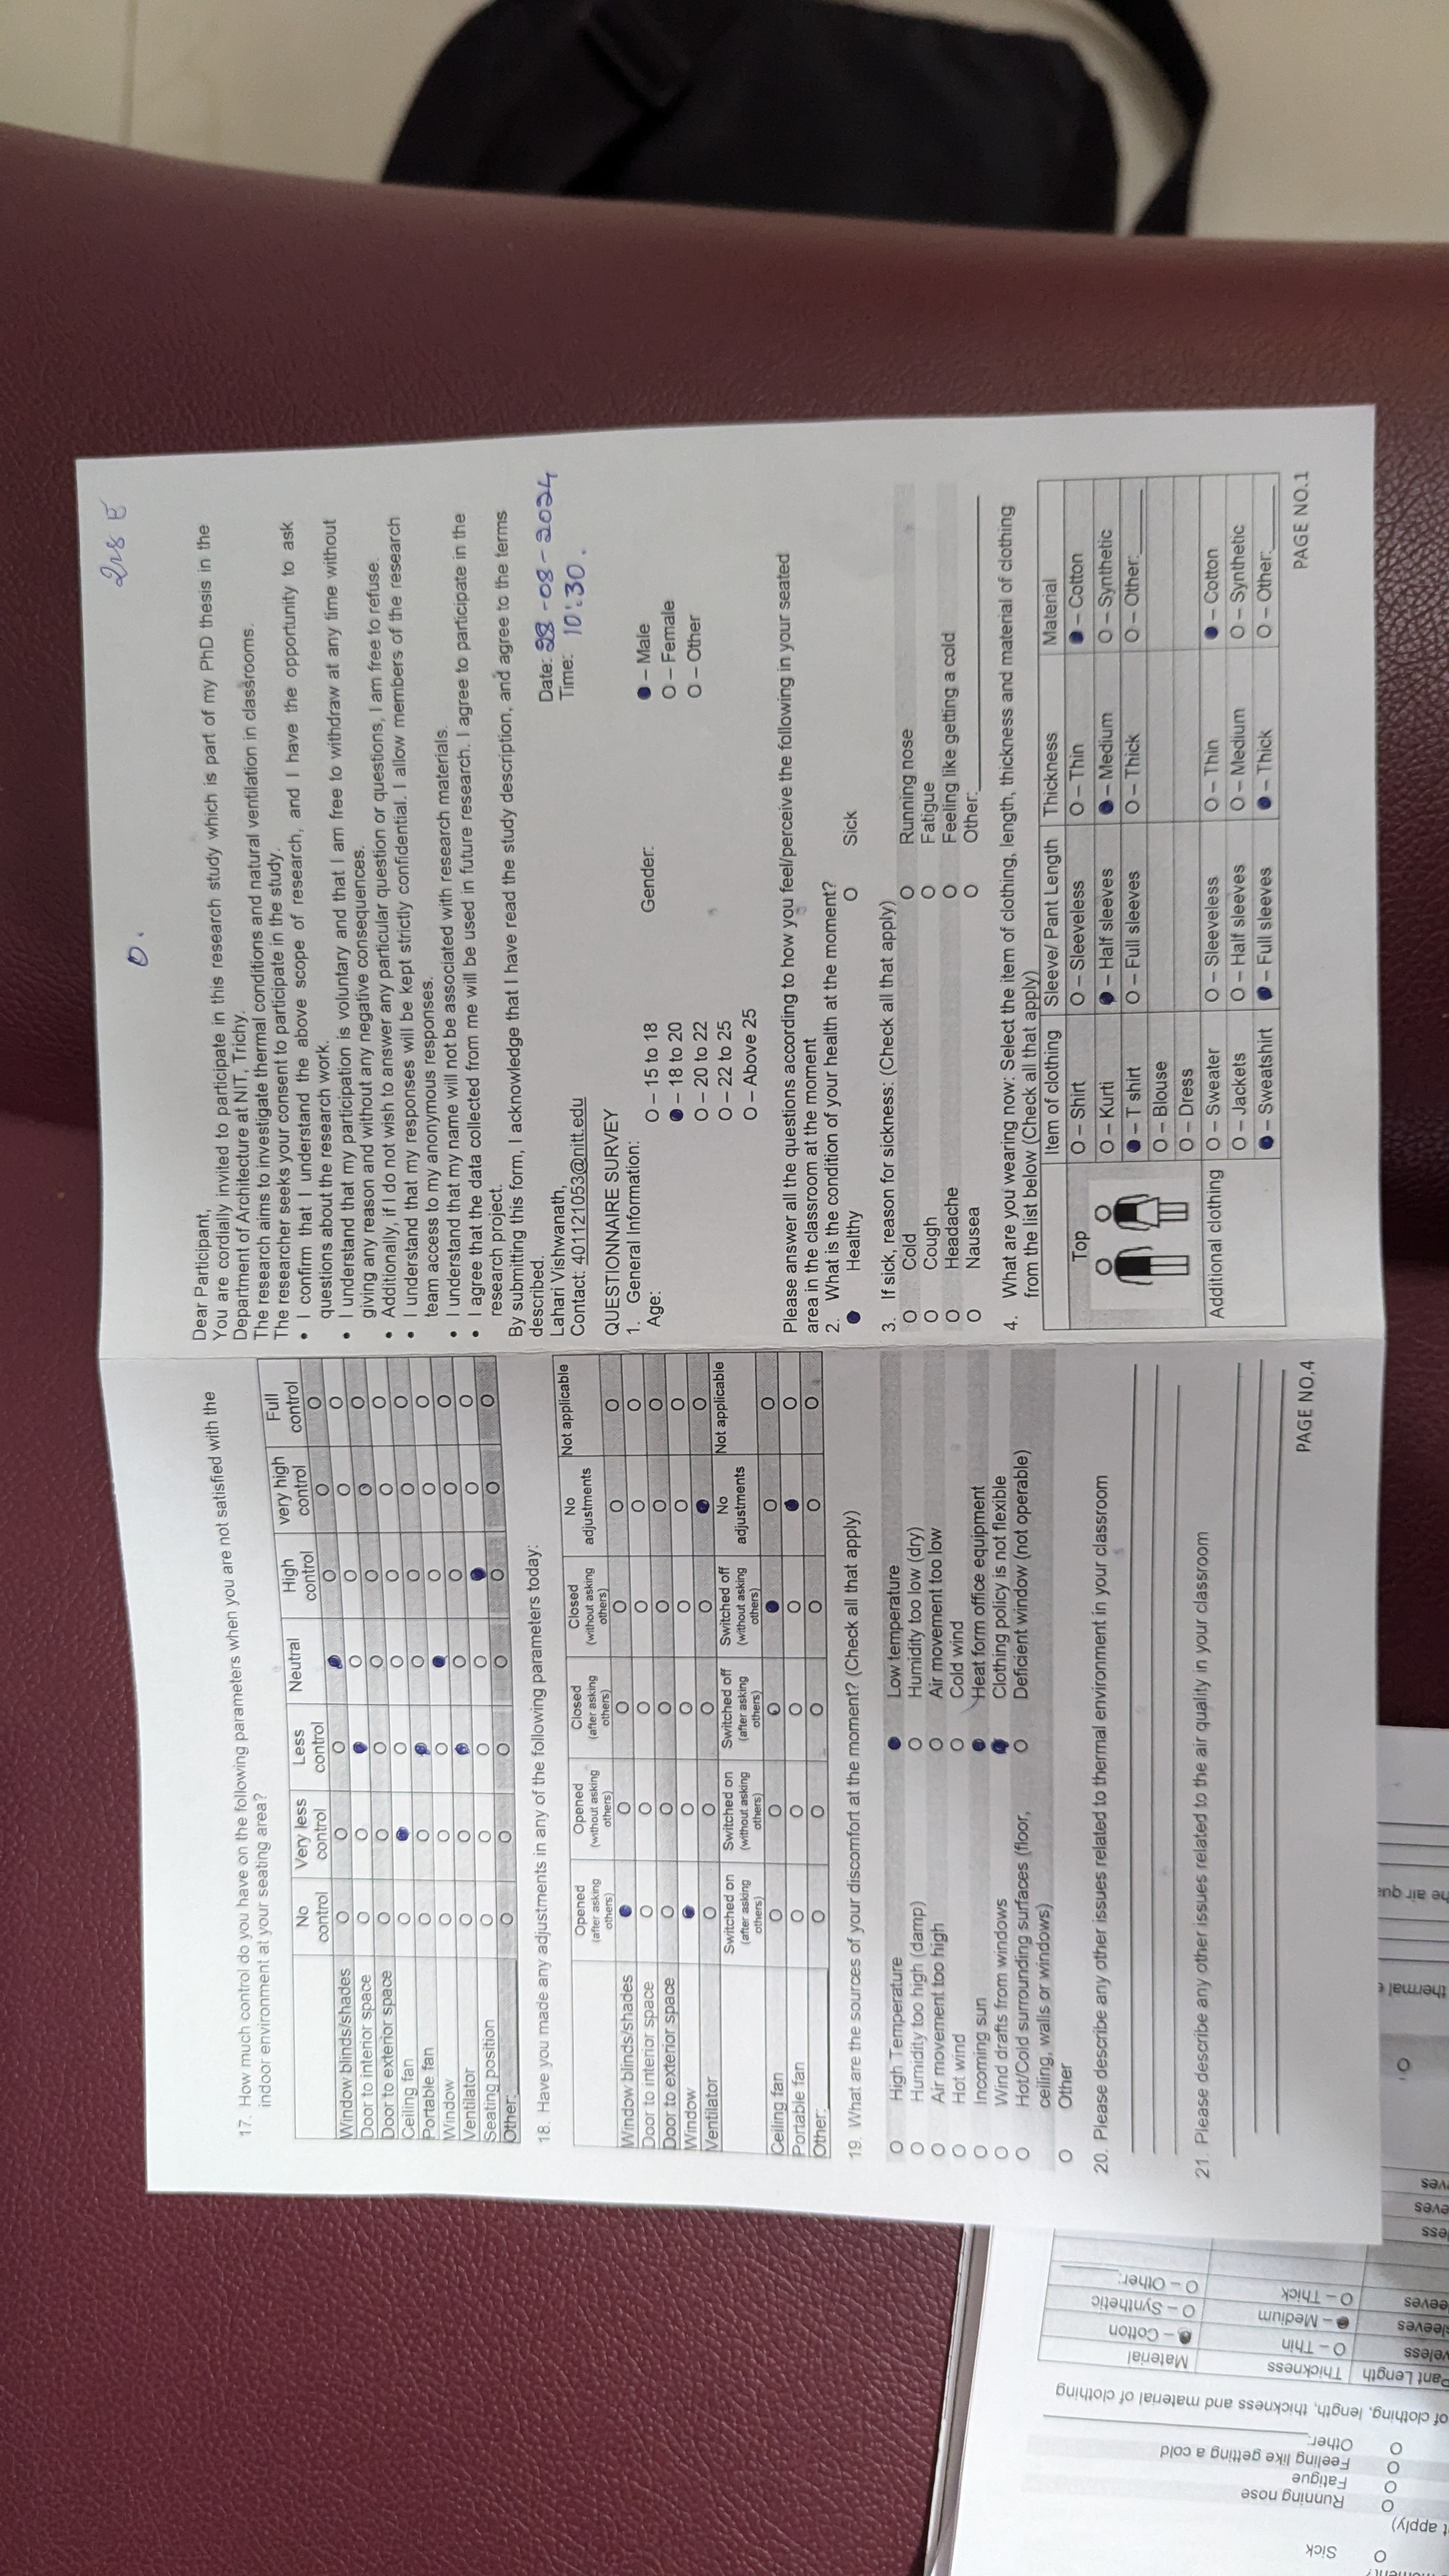 17. How much control do you have on the following parameters when you are not satisfied with the
indoor environment at your seating area?
No control Very less control Less control Neutral High control very high control Full control
Window blinds/shades O O O ● O O O
Door to interior space O O ● O O O O
Door to exterior space O O O O O O O
Ceiling fan O ● O O O O O
Portable fan O O ● O O O O
Window O O O ● O O O
Ventilator O O ● O O O O
Seating position O O O O ● O O
Other:________ O O O O O O O
18. Have you made any adjustments in any of the following parameters today:
Opened (after asking others) Opened (without asking others) Closed (after asking others) Closed (without asking others) No adjustments Not applicable
Window blinds/shades ● O O O O O
Door to interior space O O O O O O
Door to exterior space O O O O O O
Window ● O O O O O
Ventilator O O O O ● O
Switched on (after asking others) Switched on (without asking others) Switched off (after asking others) Switched off (without asking others) No adjustments Not applicable
Ceiling fan O O O ● O O
Portable fan O O O O ● O
Other:________ O O O O O O
19. What are the sources of your discomfort at the moment? (Check all that apply)
O High Temperature ● Low temperature
O Humidity too high (damp) O Humidity too low (dry)
O Air movement too high O Air movement too low
O Hot wind O Cold wind
O Incoming sun ● Heat form office equipment
O Wind drafts from windows ● Clothing policy is not flexible
O Hot/Cold surrounding surfaces (floor, O Deficient window (not operable)
ceiling, walls or windows)
O Other
20. Please describe any other issues related to thermal environment in your classroom
21. Please describe any other issues related to the air quality in your classroom
PAGE NO.4
0.
Dear Participant,
You are cordially invited to participate in this research study which is part of my PhD thesis in the
Department of Architecture at NIT, Trichy.
The research aims to investigate thermal conditions and natural ventilation in classrooms.
The researcher seeks your consent to participate in the study.
• I confirm that I understand the above scope of research, and I have the opportunity to ask
questions about the research work.
• I understand that my participation is voluntary and that I am free to withdraw at any time without
giving any reason and without any negative consequences.
• Additionally, if I do not wish to answer any particular question or questions, I am free to refuse.
• I understand that my responses will be kept strictly confidential. I allow members of the research
team access to my anonymous responses.
• I understand that my name will not be associated with research materials.
• I agree that the data collected from me will be used in future research. I agree to participate in the
research project.
By submitting this form, I acknowledge that I have read the study description, and agree to the terms
described.
Lahari Vishwanath,
Contact: 401121053@nitt.edu
Date: 28-08-2024
Time: 10:30.
QUESTIONNAIRE SURVEY
1. General Information:
Age: O – 15 to 18 Gender: ● – Male
● – 18 to 20 O – Female
O – 20 to 22 O – Other
O – 22 to 25
O – Above 25
Please answer all the questions according to how you feel/perceive the following in your seated
area in the classroom at the moment
2. What is the condition of your health at the moment?
● Healthy O Sick
3. If sick, reason for sickness: (Check all that apply)
O Cold O Running nose
O Cough O Fatigue
O Headache O Feeling like getting a cold
O Nausea O Other:________
4. What are you wearing now: Select the item of clothing, length, thickness and material of clothing
from the list below (Check all that apply)
Item of clothing Sleeve/ Pant Length Thickness Material
Top O – Shirt O – Sleeveless O – Thin ● – Cotton
O – Kurti ● – Half sleeves ● – Medium O – Synthetic
● – T shirt O – Full sleeves O – Thick O – Other:______
O – Blouse
O – Dress
Additional clothing O – Sweater O – Sleeveless O – Thin ● – Cotton
O – Jackets O – Half sleeves O – Medium O – Synthetic
● – Sweatshirt ● – Full sleeves ● – Thick O – Other:______
PAGE NO.1
O Sick
O Running nose
O Fatigue
O Feeling like getting a cold
O Other:
apply)
of clothing, length, thickness and material of clothing
Pant Length Thickness Material
O – Thin ● – Cotton
● – Medium O – Synthetic
O – Thick O – Other:
thermal